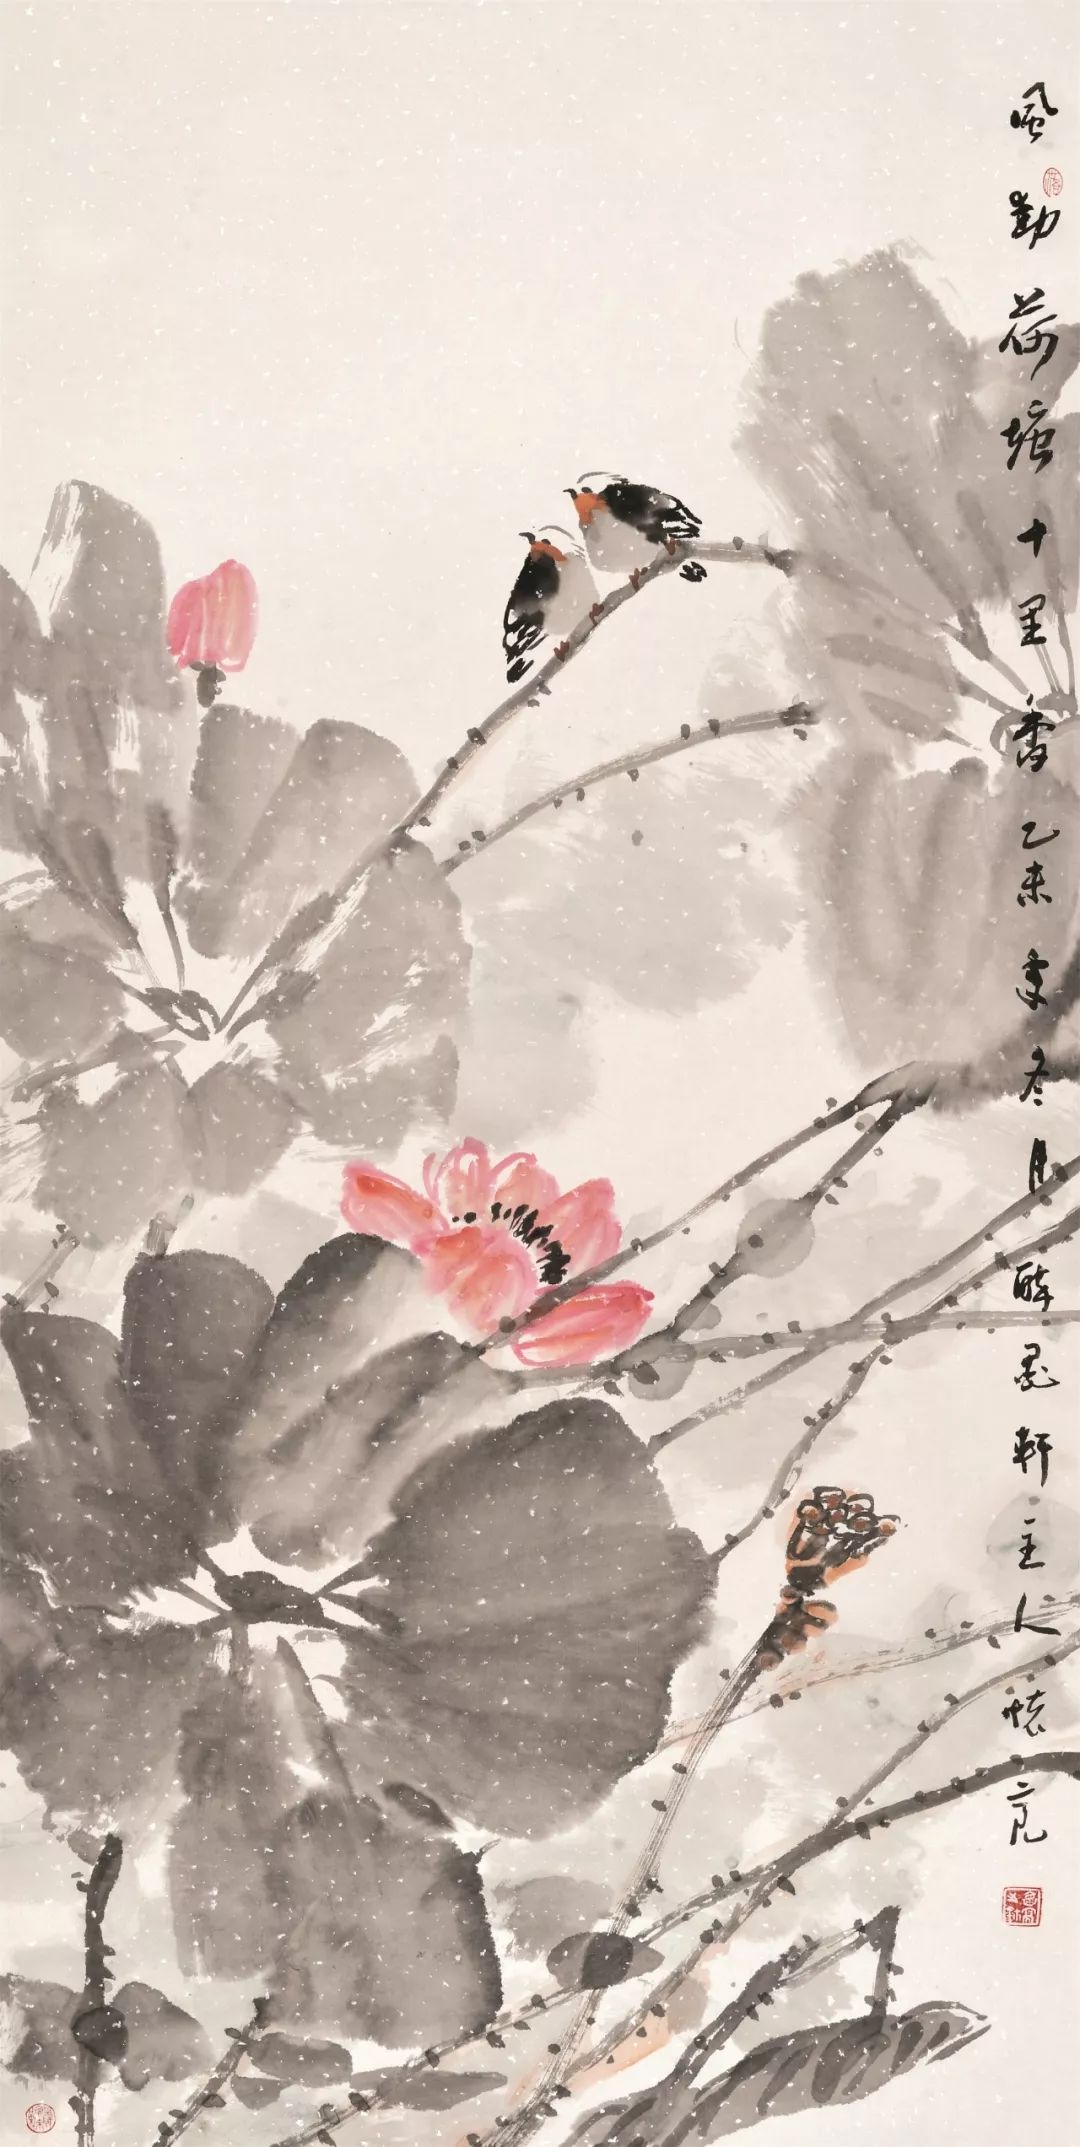 風動荷塘十里香乙未年冬月醉墨軒主人懷亮